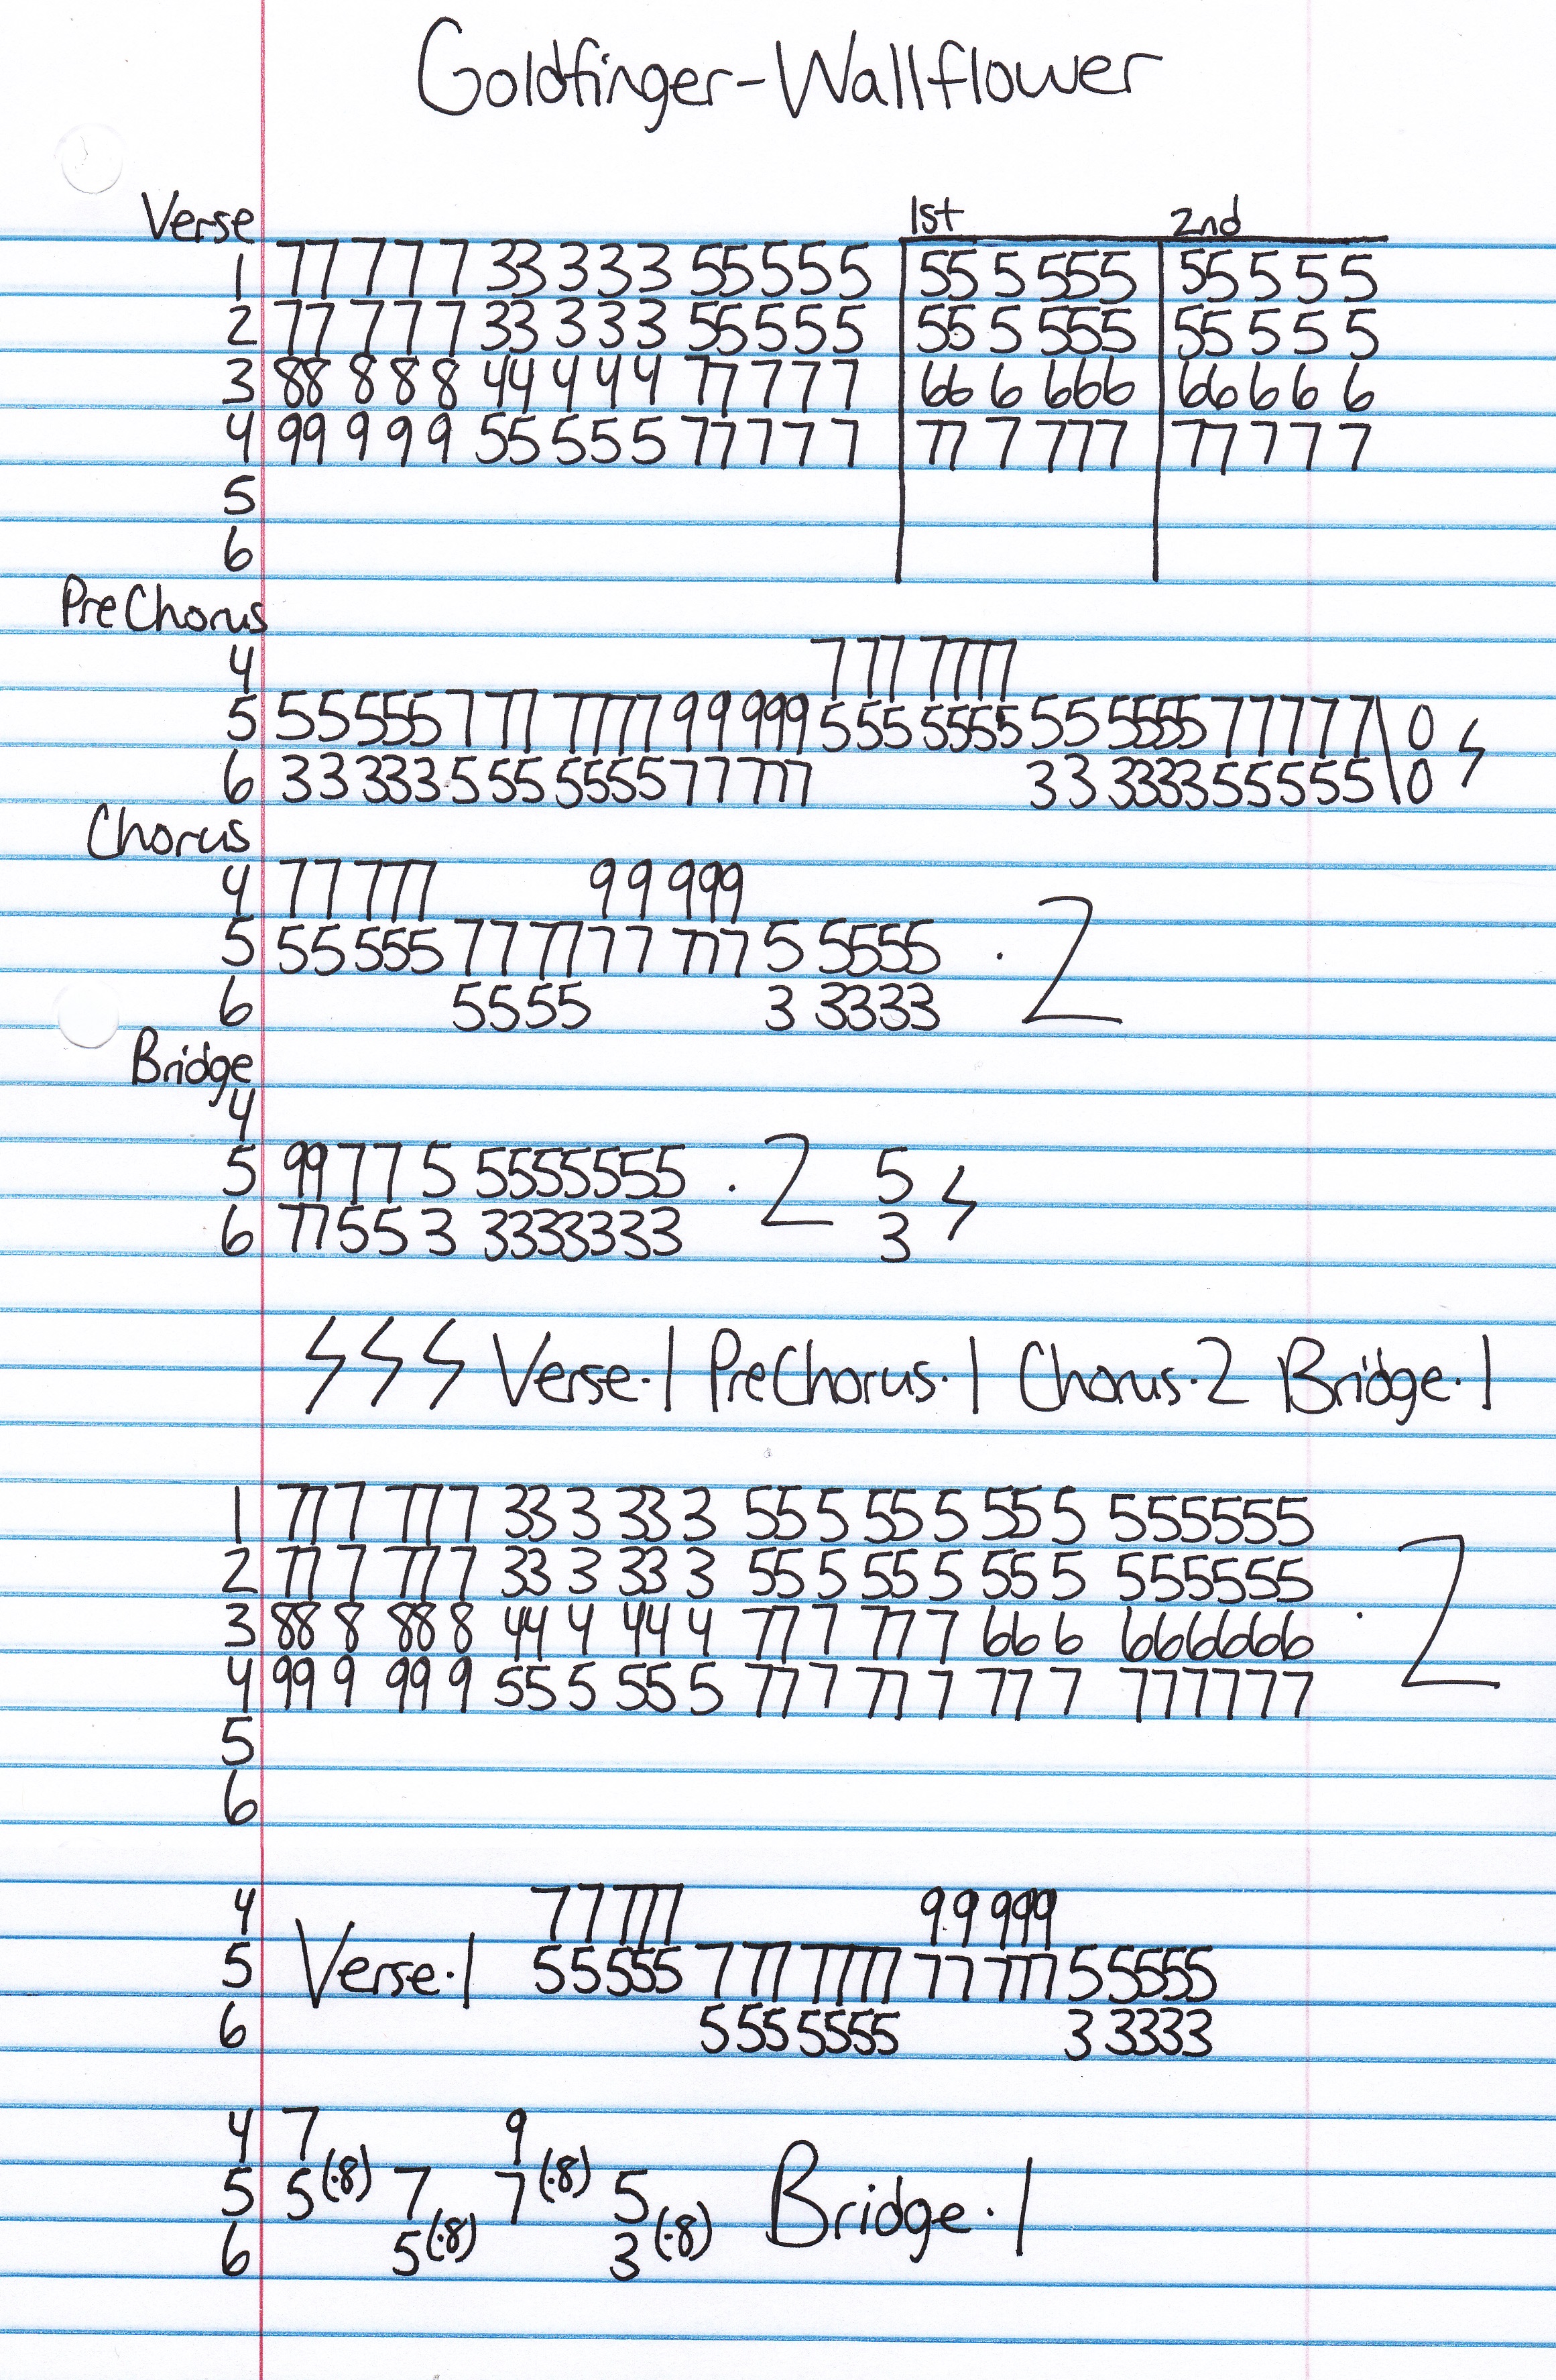 Goldfinger-Wallflower
Verse 1st 2nd
1 77 7 7 7 33 3 3 3 55 5 5 5 55 5 555 55 5 5 5
2 77 7 7 7 33 3 3 3 55 5 5 5 55 5 555 55 5 5 5
3 88 8 8 8 44 4 4 4 77 7 7 7 66 6 666 66 6 6 6
4 99 9 9 9 55 5 5 5 77 7 7 7 77 7 777 77 7 7 7
5
6
PreChorus
4 777 7777
5 55555 777 7777 99 999 555 5555 55 5555 77777\0
6 33 333 555 5555 77 777 33 3333 55555\0
Chorus
4 77 777 99 999
5 55 555 77 77 77 777 5 5555 . 2
6 5555 3 3333
Bridge
4
5 99 77 5 5555555 . 2 5
6 77 55 3 3333333 3
Verse.1 PreChorus.1 Chorus.2 Bridge.1
1 77 7 77 7 33 3 33 3 55 5 55 5 55 5 555555
2 77 7 77 7 33 3 33 3 55 5 55 5 55 5 555555 . 2
3 88 8 88 8 44 4 44 4 77 7 77 7 66 6 666666
4 99 9 99 9 55 5 55 5 77 7 77 7 77 7 777777
5
6
4 77 777 99 999
5 Verse.1 55555 777 7777 77 777 55555
6 555 5555 3 3333
4 7 9
5 5(.8) 7 7(.8) 5 Bridge.1
6 5(.8) 3(.8)